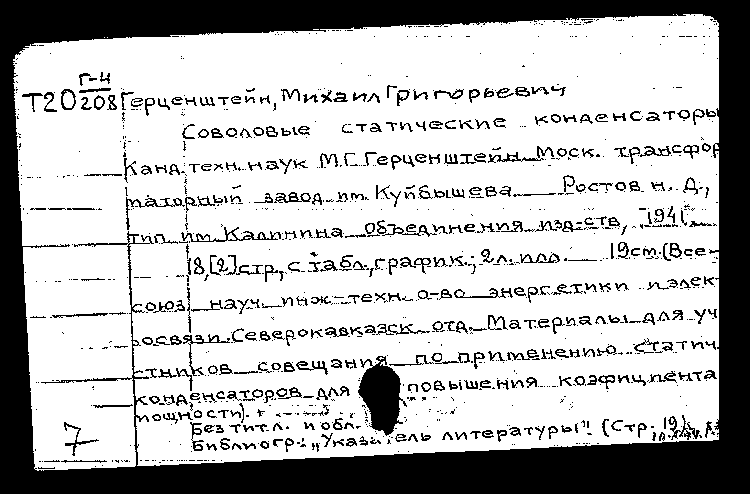 Г-4
Т20 208 Герценштейн, Михаил Григорьевич
Соволовые статические конденсаторы
Канд. техн. наук М.Г. Герценштейн. Моск. трансфор
маторный завод им. Куйбышева. Ростов н. Д.,
тип. им. Калинина объединения изд-ств, 1941.
18,[2] стр., с табл., график.; 2 л. илл. 19 см. (Все-
союз. науч. инж-техн. о-во энергетики и элек-
росвязи. Северокавказск. отд. Материалы для уч
стников совещания по применению статич.
конденсаторов для повышения коэфициента
мощности).
Без тит.л. и обл.
7 Библиогр.: „Указатель литературы". (Стр. 19)